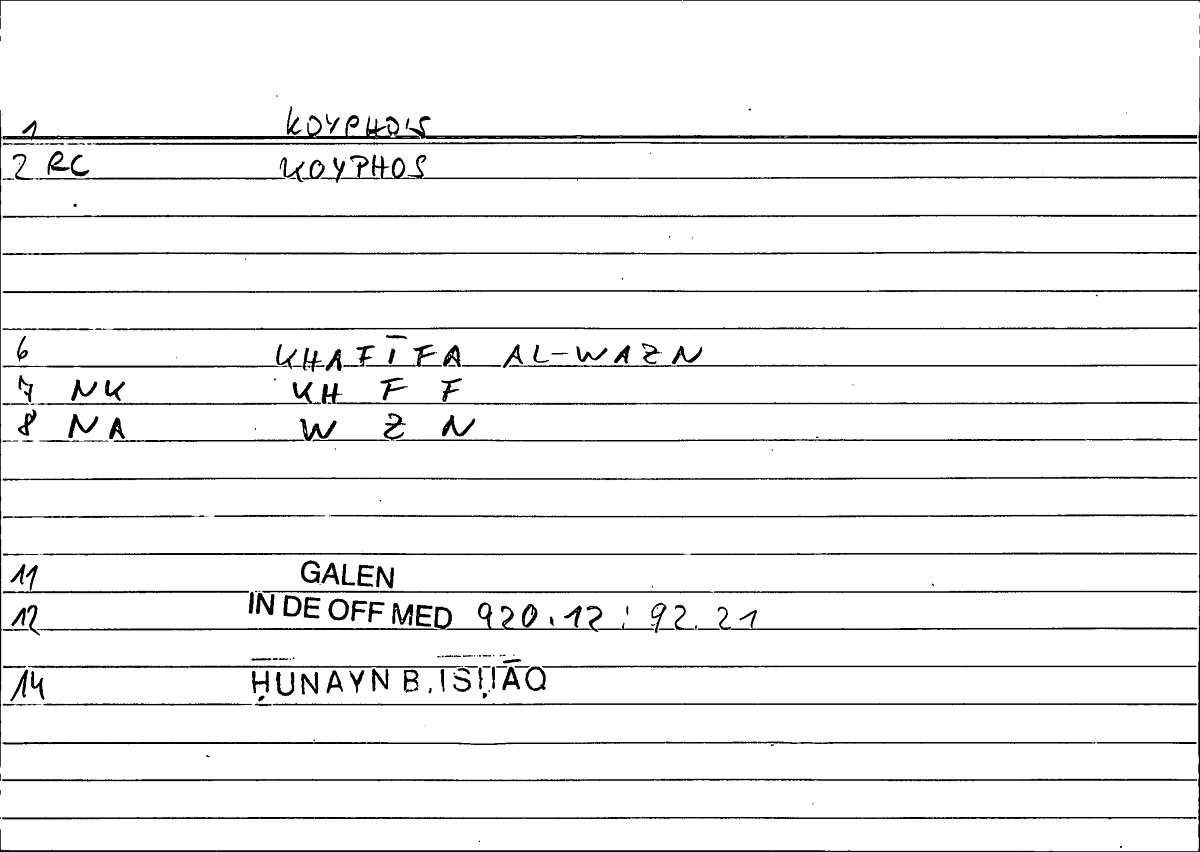 1 KOYPHOIS
2 RC KOYPHOS
6 KHAFĪFA AL-WAZN
7 NK KH F F
8 NA W Z N
11 GALEN
12 IN DE OFF MED 920.12 : 92.21
14 ḤUNAYN B. ISḤĀQ